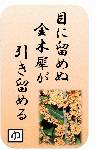 目に留めぬ
金木犀が
引き留める